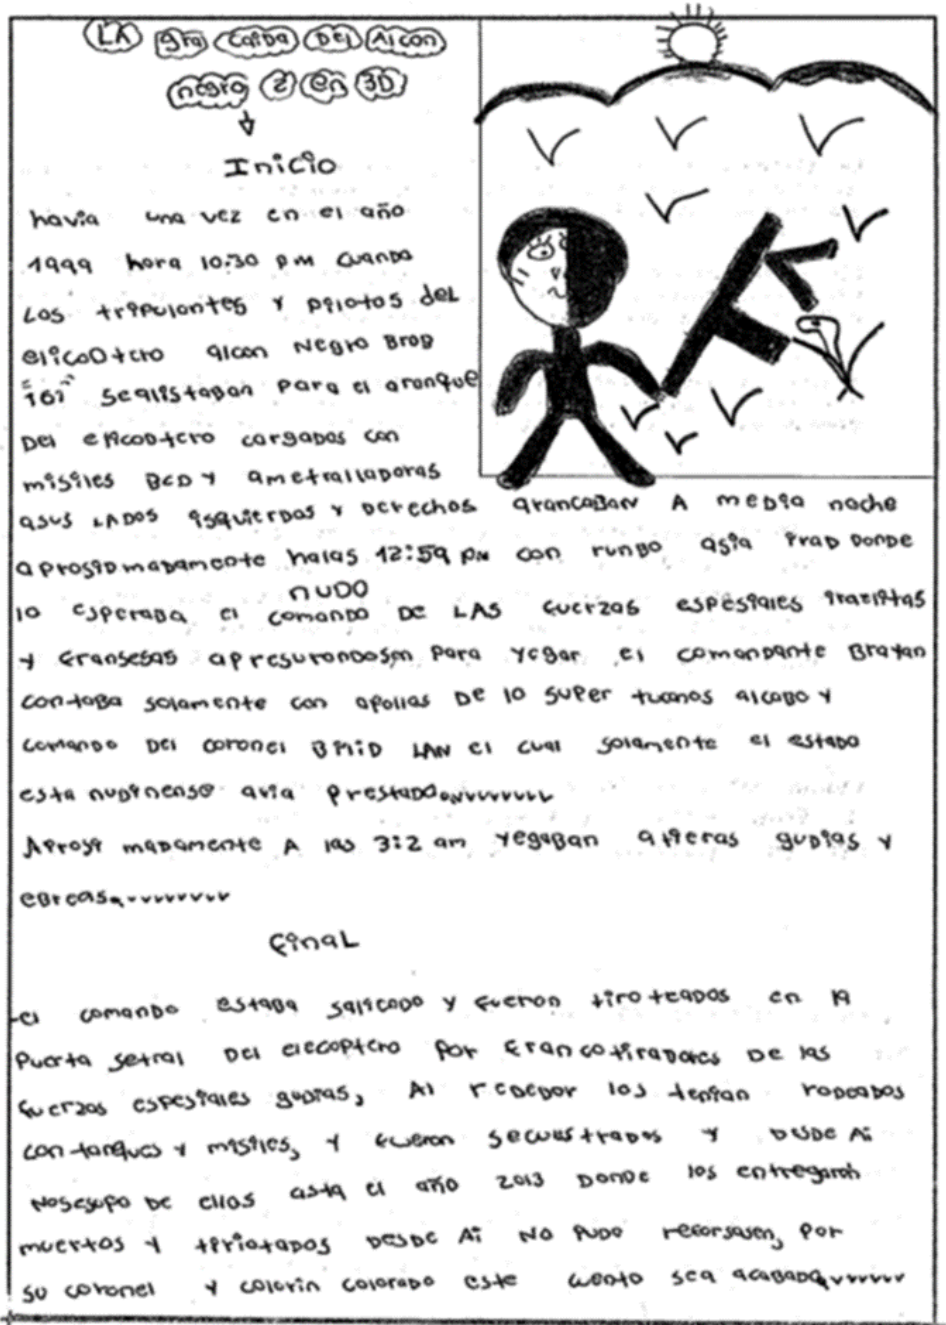 LA gra caida Del Alcon
negro 2 en 3D
Inicio
havia una vez en el año
1999 hora 10:30 pm cuando
Los tripulontes y pilotos del
elicoptero alcon Negro Brod
"167" sealistaban para el aronque
Del elicoptero cargados con
misiles BCD y ametralladoras
asus LADOS isquierdos y Derechos arancaban A media noche
aprosidmadamente halas 12:59 pm con runbo asia irad Donde
nudo
lo esperaba el comando DE LAS fuerzas espesiales
y fransesas apresurondosen para yegar el comandante Brayan
contaba solamente con apollas De lo super tucanos alcabo y
comando Del coronel LAN el cual solamente el estado
esta nudinense avia prestado
Aprosi madamente A las 3:2 am yegaban atieras gudias y

final
el comando estaba salicado y fueron tiro teados en la
puerta setral Del elecoptero por francotiradores De las
fuerzas espesiales gudias, Al rededor los tenian rodeados
con tanques y misiles, y fueron secuestrados y Desde Ai
Nosesupo De ellos asta el año 2013 Donde los entregaron
muertos y Desde Ai No pudo recorsasen, por
su coronel y colorin colorado este cuento sea acabado